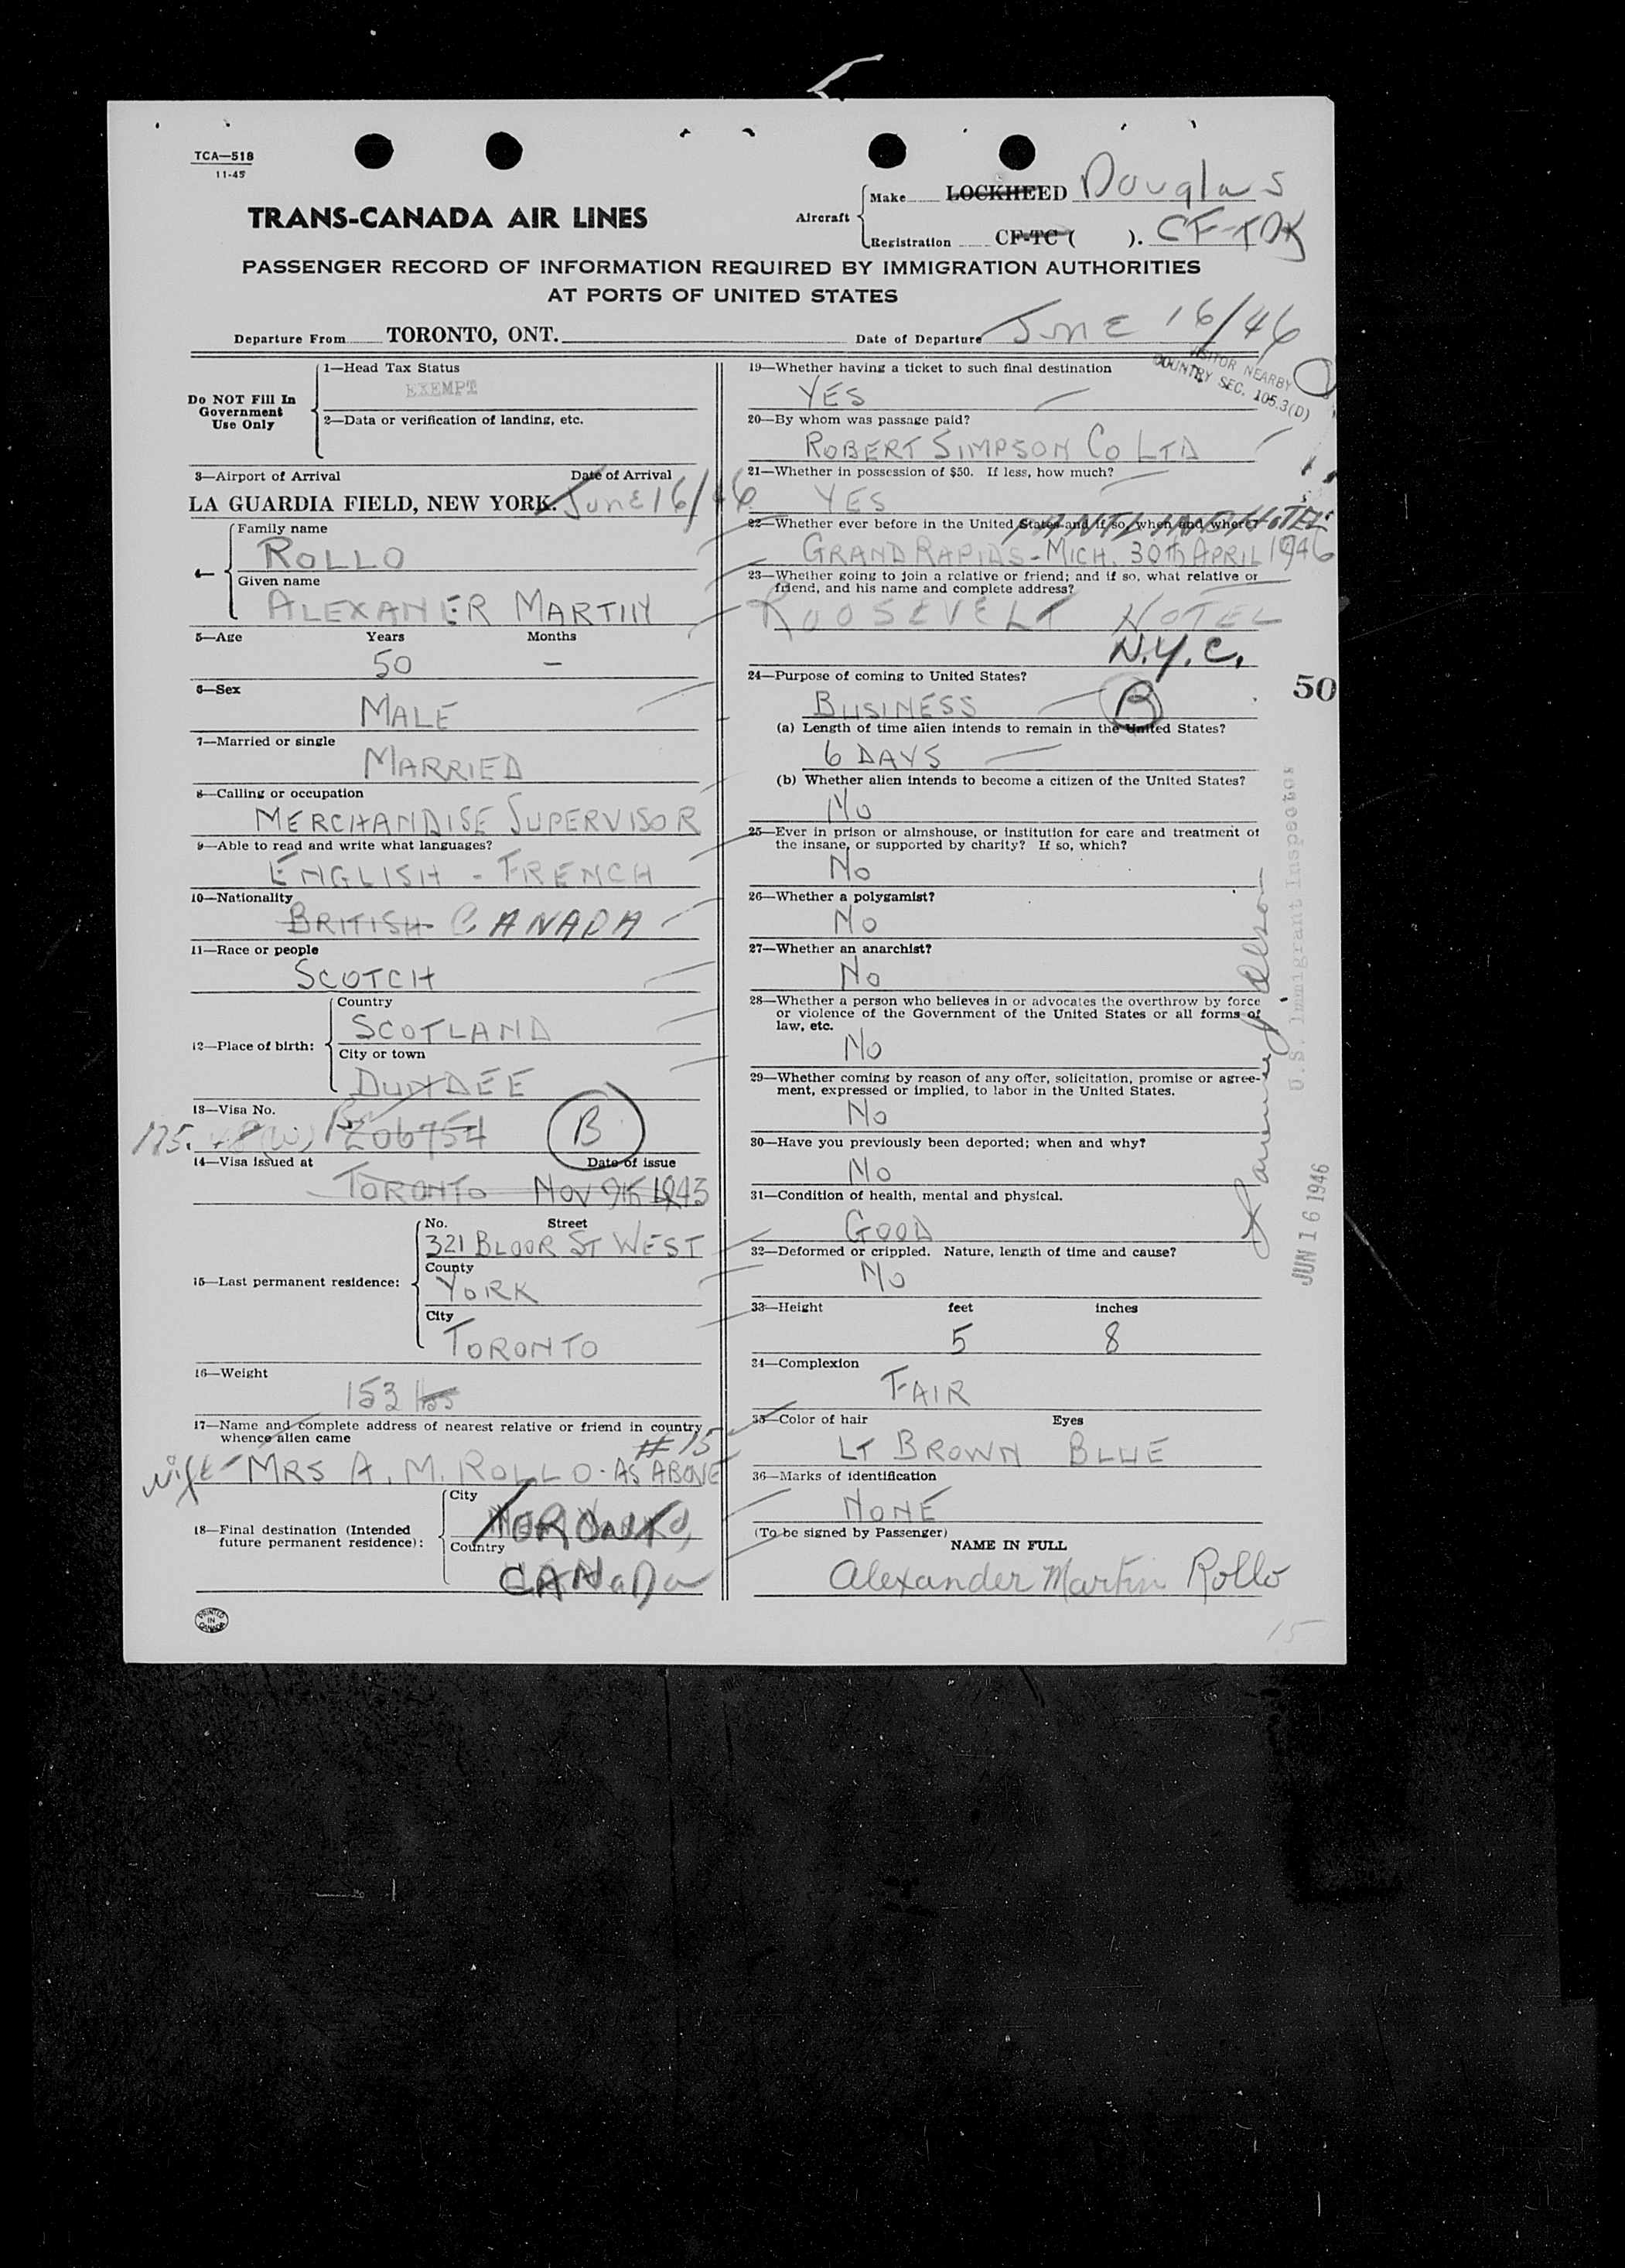 TCA—518
11-45
TRANS-CANADA AIR LINES
Aircraft
Make LOCKHEED Douglas
Registration CF-TC ( ).
PASSENGER RECORD OF INFORMATION REQUIRED BY IMMIGRATION AUTHORITIES
AT PORTS OF UNITED STATES
Departure From TORONTO, ONT.
Date of Departure JUNE 16/46
VISITOR NEARBY
COUNTRY SEC. 105.3(D)
Do NOT Fill In
Government
Use Only
1—Head Tax Status
EXEMPT
2—Data or verification of landing, etc.
3—Airport of Arrival Date of Arrival
LA GUARDIA FIELD, NEW YORK. June 16/46
4— Family name
ROLLO
Given name
ALEXANER MARTIN
5—Age Years Months
50 —
6—Sex
MALE
7—Married or single
MARRIED
8—Calling or occupation
MERCHANDISE SUPERVISOR
9—Able to read and write what languages?
ENGLISH - FRENCH
10—Nationality
BRITISH CANADA
11—Race or people
SCOTCH
12—Place of birth:
Country
SCOTLAND
City or town
DUNDEE
13—Visa No.
175. 206754 B
14—Visa issued at Date of issue
TORONTO NOV 9th 1943
15—Last permanent residence:
No. Street
321 BLOOR ST WEST
County
YORK
City
TORONTO
16—Weight
153 lbs
17—Name and complete address of nearest relative or friend in country
whence alien came
# 15
wife - MRS A. M. ROLLO - AS ABOVE
18—Final destination (Intended
future permanent residence):
City
TORONTO,
Country
CANADA
PRINTED
IN
CANADA
19—Whether having a ticket to such final destination
YES
20—By whom was passage paid?
ROBERT SIMPSON CO LTD
21—Whether in possession of $50. If less, how much?
YES
22—Whether ever before in the United States and if so, when and where?
HOTEL
GRAND RAPIDS - MICH. 30th APRIL 1946
23—Whether going to join a relative or friend; and if so, what relative or
friend, and his name and complete address?
ROOSEVELT HOTEL
N.Y.C.
24—Purpose of coming to United States?
BUSINESS B
50
(a) Length of time alien intends to remain in the United States?
6 DAYS
(b) Whether alien intends to become a citizen of the United States?
NO
25—Ever in prison or almshouse, or institution for care and treatment of
the insane, or supported by charity? If so, which?
NO
26—Whether a polygamist?
NO
27—Whether an anarchist?
NO
28—Whether a person who believes in or advocates the overthrow by force
or violence of the Government of the United States or all forms of
law, etc.
NO
29—Whether coming by reason of any offer, solicitation, promise or agree-
ment, expressed or implied, to labor in the United States.
NO
30—Have you previously been deported; when and why?
NO
31—Condition of health, mental and physical.
GOOD
32—Deformed or crippled. Nature, length of time and cause?
NO
33—Height feet inches
5 8
34—Complexion
FAIR
35—Color of hair Eyes
LT BROWN BLUE
36—Marks of identification
NONE
(To be signed by Passenger)
NAME IN FULL
Alexander Martin Rollo
15
U.S. Immigrant Inspector
JUN 16 1946